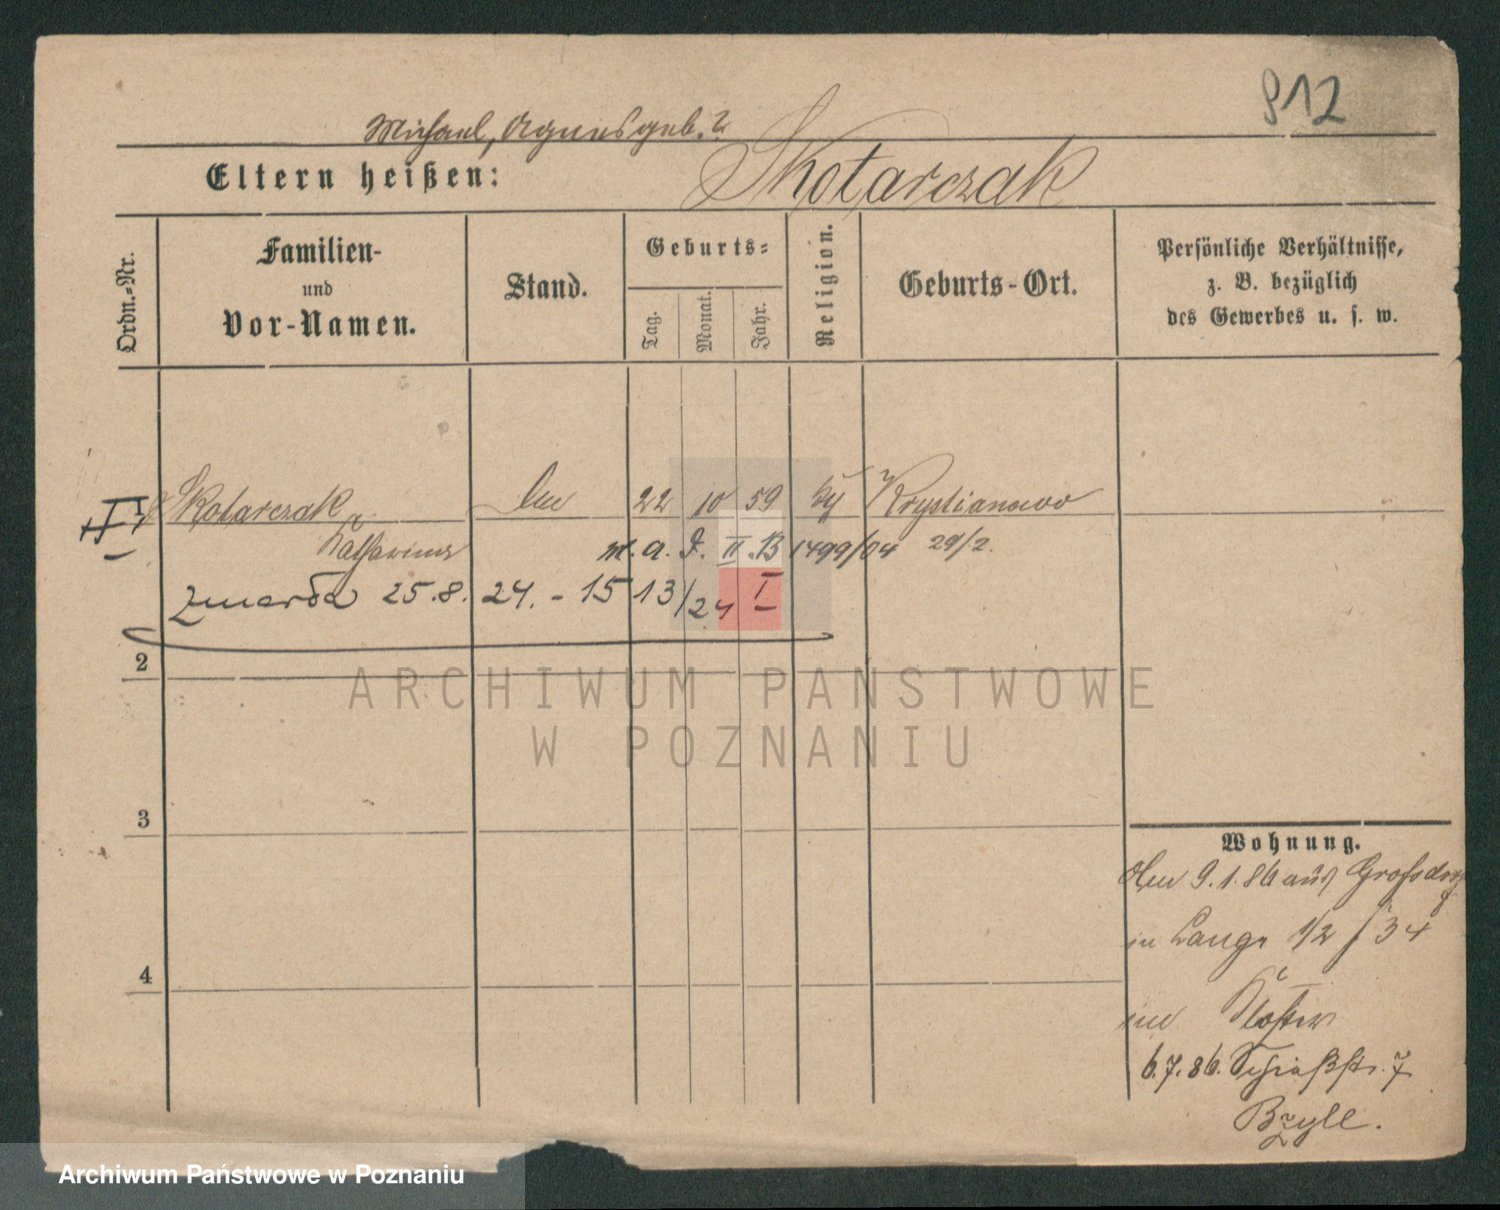 912
Michael, Agnes geb. ?
Eltern heißen: Skotarczak
Ordn.-Nr.
Familien-
und
Vor-Namen.
Stand.
Geburts-
Tag.
Monat.
Jahr.
Religion.
Geburts-Ort.
Persönliche Verhältnisse,
z. B. bezüglich
des Gewerbes u. s. w.
Skotarczak 22 10 59 Krystianowo
Katharina
II. B 1499/04 29/2.
zmarła 25.8. 24. - 1513/24 I
2
3
4
Wohnung.
9.1.86 aus Großdorf
in Lange 1/2 34
Kloster
6.7.86. Schießstr. 7
Bzyll.
ARCHIWUM PAŃSTWOWE
W POZNANIU
Archiwum Państwowe w Poznaniu